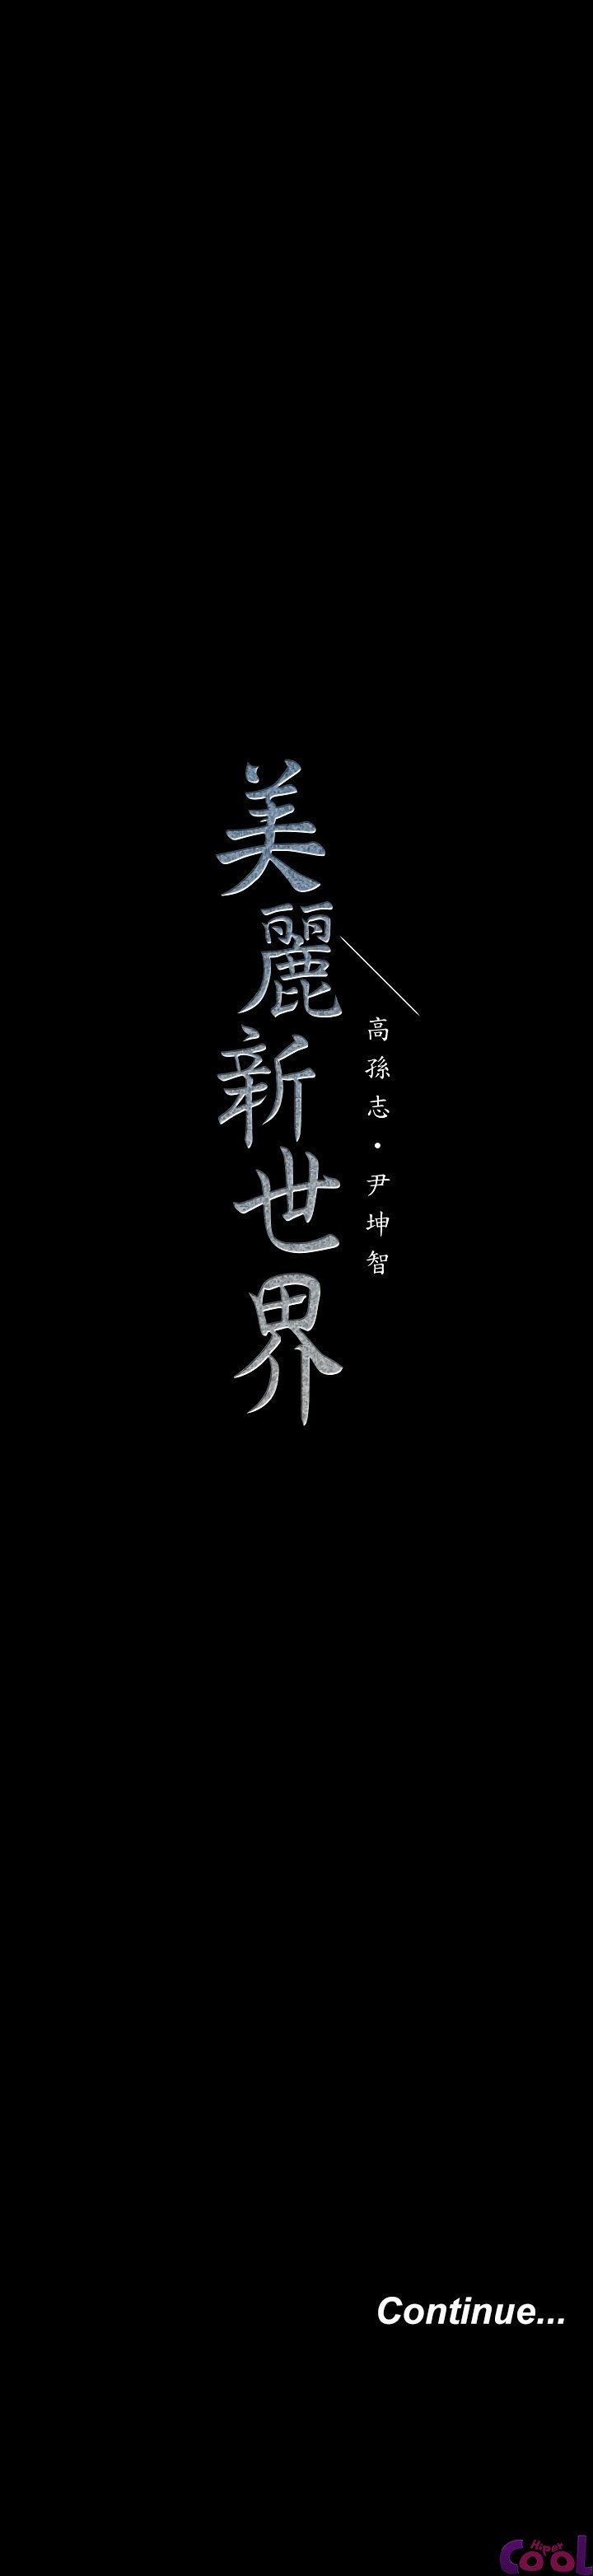 美麗新世界
高孫志・尹坤智
Continue...
Hiper
COOL